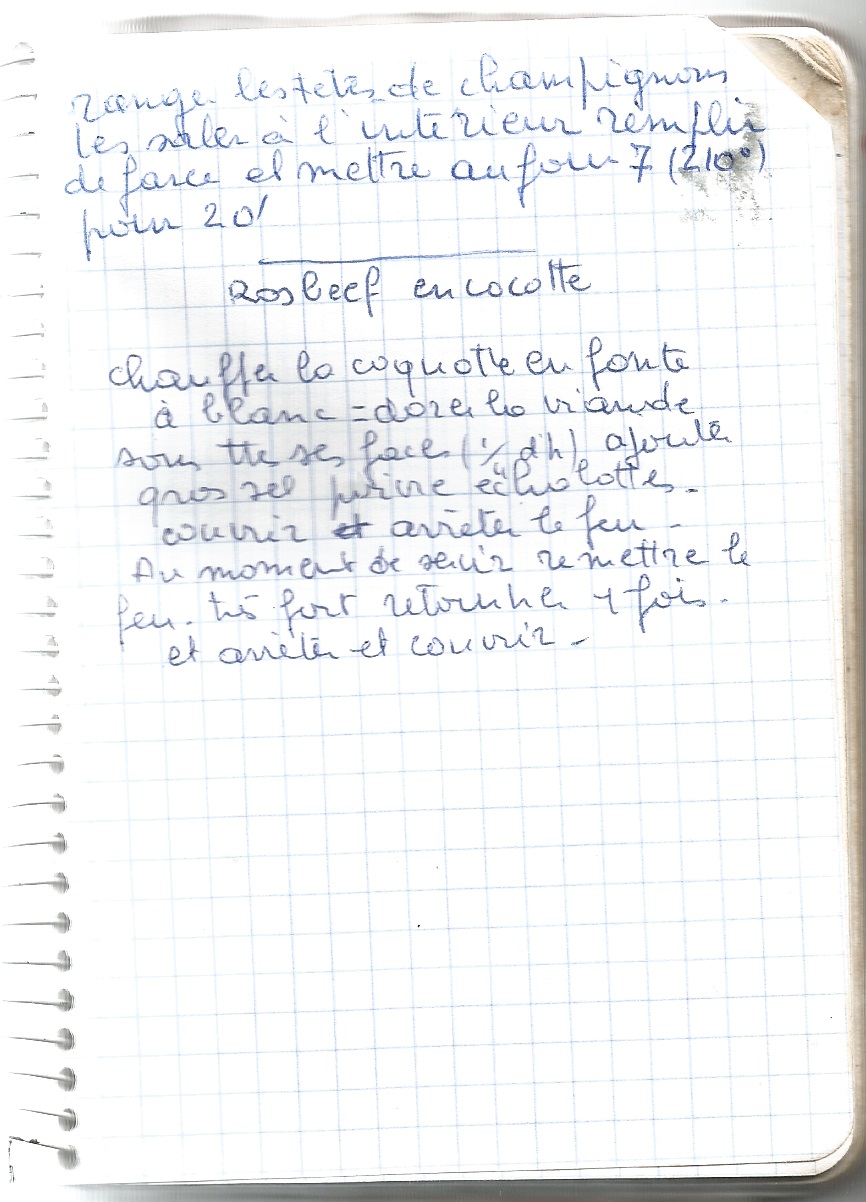 range les têtes de champignons
les saler à l'intérieur remplir
de farce et mettre au four 7 (210°)
pour 20'
rosbeef en cocotte
chauffer la coquotte en fonte
à blanc = dorer la viande
sous ttes ses faces (1/ d'h) ajouter
gros sel poivre échalottes.
couvrir et arrêter le feu -
Au moment de servir remettre le
feu. très fort retourner 1 fois.
et arrêter et couvrir -